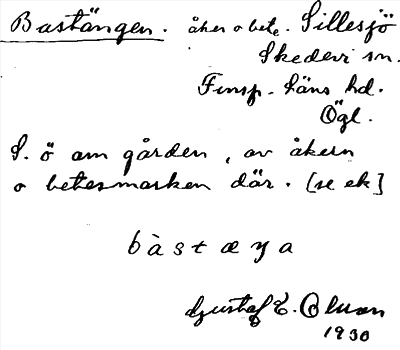 Bastängen. åker o bete. Sillesjö
Skedevi sn.
Finsp. läns hd.
Ögl.
S. ö om gården, av åkern
o betesmarken där. [se ek]
bàstæŋa
Gustaf E. Olson
1930